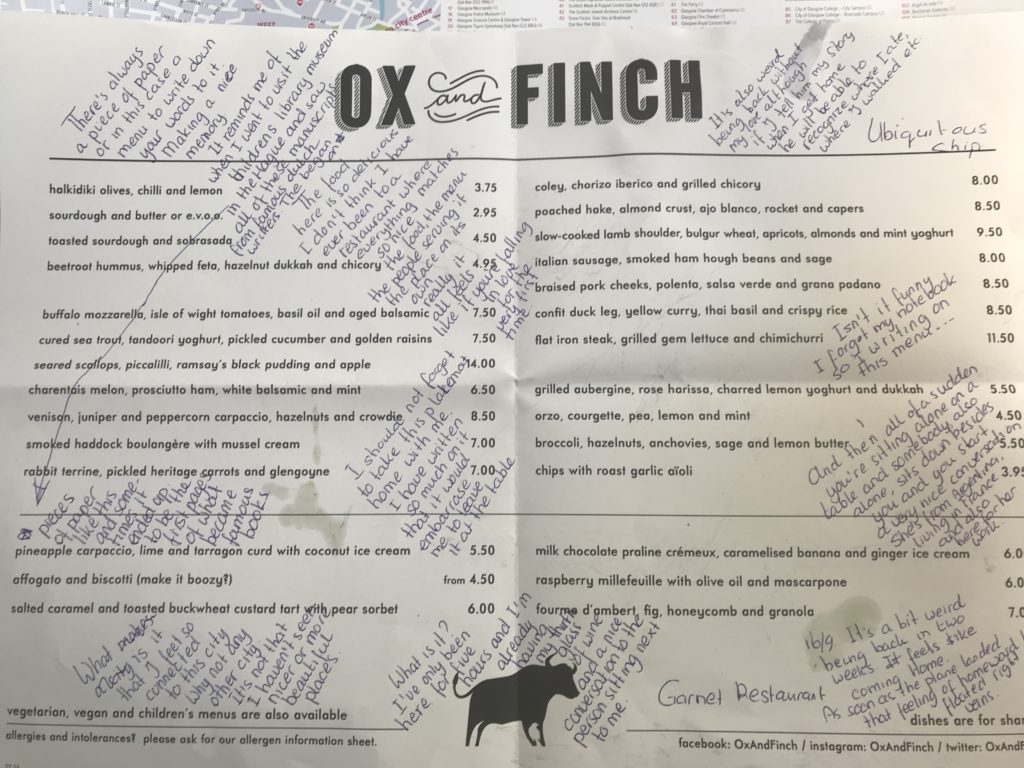 city centre
OX and FINCH
There's always
a piece of paper
or in this case a
menu to write down
your words to it
Making a nice
memory. It
It reminds me of
when I went to visit the
childrens library museum
in the Hague and saw
all of these manuscripts
from famous dutch
writers. The began on
The food
here is so delicious
I don't think I have
ever been to a
restaurant where
everything matches
so nice
the food, the menu
the people serving it
the place on its
own
really it
all feels
like if you're falling
in love for the
very
time first
It's also weird
being back without
my love although
if I'm tell him my story
when I get home
he will be able to
recognize where I ate,
where I walked etc.
Ubiquitous
chip
halkidiki olives, chilli and lemon 3.75
sourdough and butter or e.v.o.o. 2.95
toasted sourdough and sobrasada 4.50
beetroot hummus, whipped feta, hazelnut dukkah and chicory 4.95
buffalo mozzarella, isle of wight tomatoes, basil oil and aged balsamic 7.50
cured sea trout, tandoori yoghurt, pickled cucumber and golden raisins 7.50
seared scallops, piccalilli, ramsay's black pudding and apple 14.00
charentais melon, prosciutto ham, white balsamic and mint 6.50
venison, juniper and peppercorn carpaccio, hazelnuts and crowdie 8.50
smoked haddock boulangère with mussel cream 7.00
rabbit terrine, pickled heritage carrots and glengoyne 7.00
coley, chorizo iberico and grilled chicory 8.00
poached hake, almond crust, ajo blanco, rocket and capers 8.50
slow-cooked lamb shoulder, bulgur wheat, apricots, almonds and mint yoghurt 9.50
italian sausage, smoked ham hough beans and sage 8.00
braised pork cheeks, polenta, salsa verde and grana padano 8.50
confit duck leg, yellow curry, thai basil and crispy rice 8.50
flat iron steak, grilled gem lettuce and chimichurri 11.50
Isn't it funny
I forgot my notebook
so I writing on
this menu....
grilled aubergine, rose harissa, charred lemon yoghurt and dukkah 5.50
orzo, courgette, pea, lemon and mint 4.50
broccoli, hazelnuts, anchovies, sage and lemon butter 5.50
chips with roast garlic aïoli 3.95
I should not forget
to take this placemat
home with me.
I have written
so much on it
that it would
embarrace
me to leave
it at the table
And then all of a sudden
you're sitting alone on a
table and somebody also
alone, sits down besides
you and you start
a very nice conversation
She's from Argentina,
living in France
and also
here for her
work.
pieces
of paper
like this
and some-
times it
ended up
to be the
first page
of what
become
famous
books
pineapple carpaccio, lime and tarragon curd with coconut ice cream 5.50
affogato and biscotti (make it boozy?) from 4.50
salted caramel and toasted buckwheat custard tart with pear sorbet 6.00
milk chocolate praline crémeux, caramelised banana and ginger ice cream 6.0
raspberry millefeuille with olive oil and mascarpone 6.0
fourme d'ambert, fig, honeycomb and granola 7.0
What makes
a city is it
that I feel so
connected
to this city
why not any
other city
It's not that
I haven't seen
nicer or more
beautiful
places
What is it?
I've only been
here for
five
hours and I'm
already
having
my
glass
of wine
and a nice
conversation
to the
person sitting next
to me.
Garnet Restaurant
16/9 It's a bit weird
being back in two
weeks. It feels like
coming home.
As soon as the plane landed
that feeling of homeward
floated right
veins.
vegetarian, vegan and children's menus are also available
dishes are for shar
allergies and intolerances? please ask for our allergen information sheet.
facebook: OxAndFinch / instagram: OxAndFinch / twitter: OxAndF